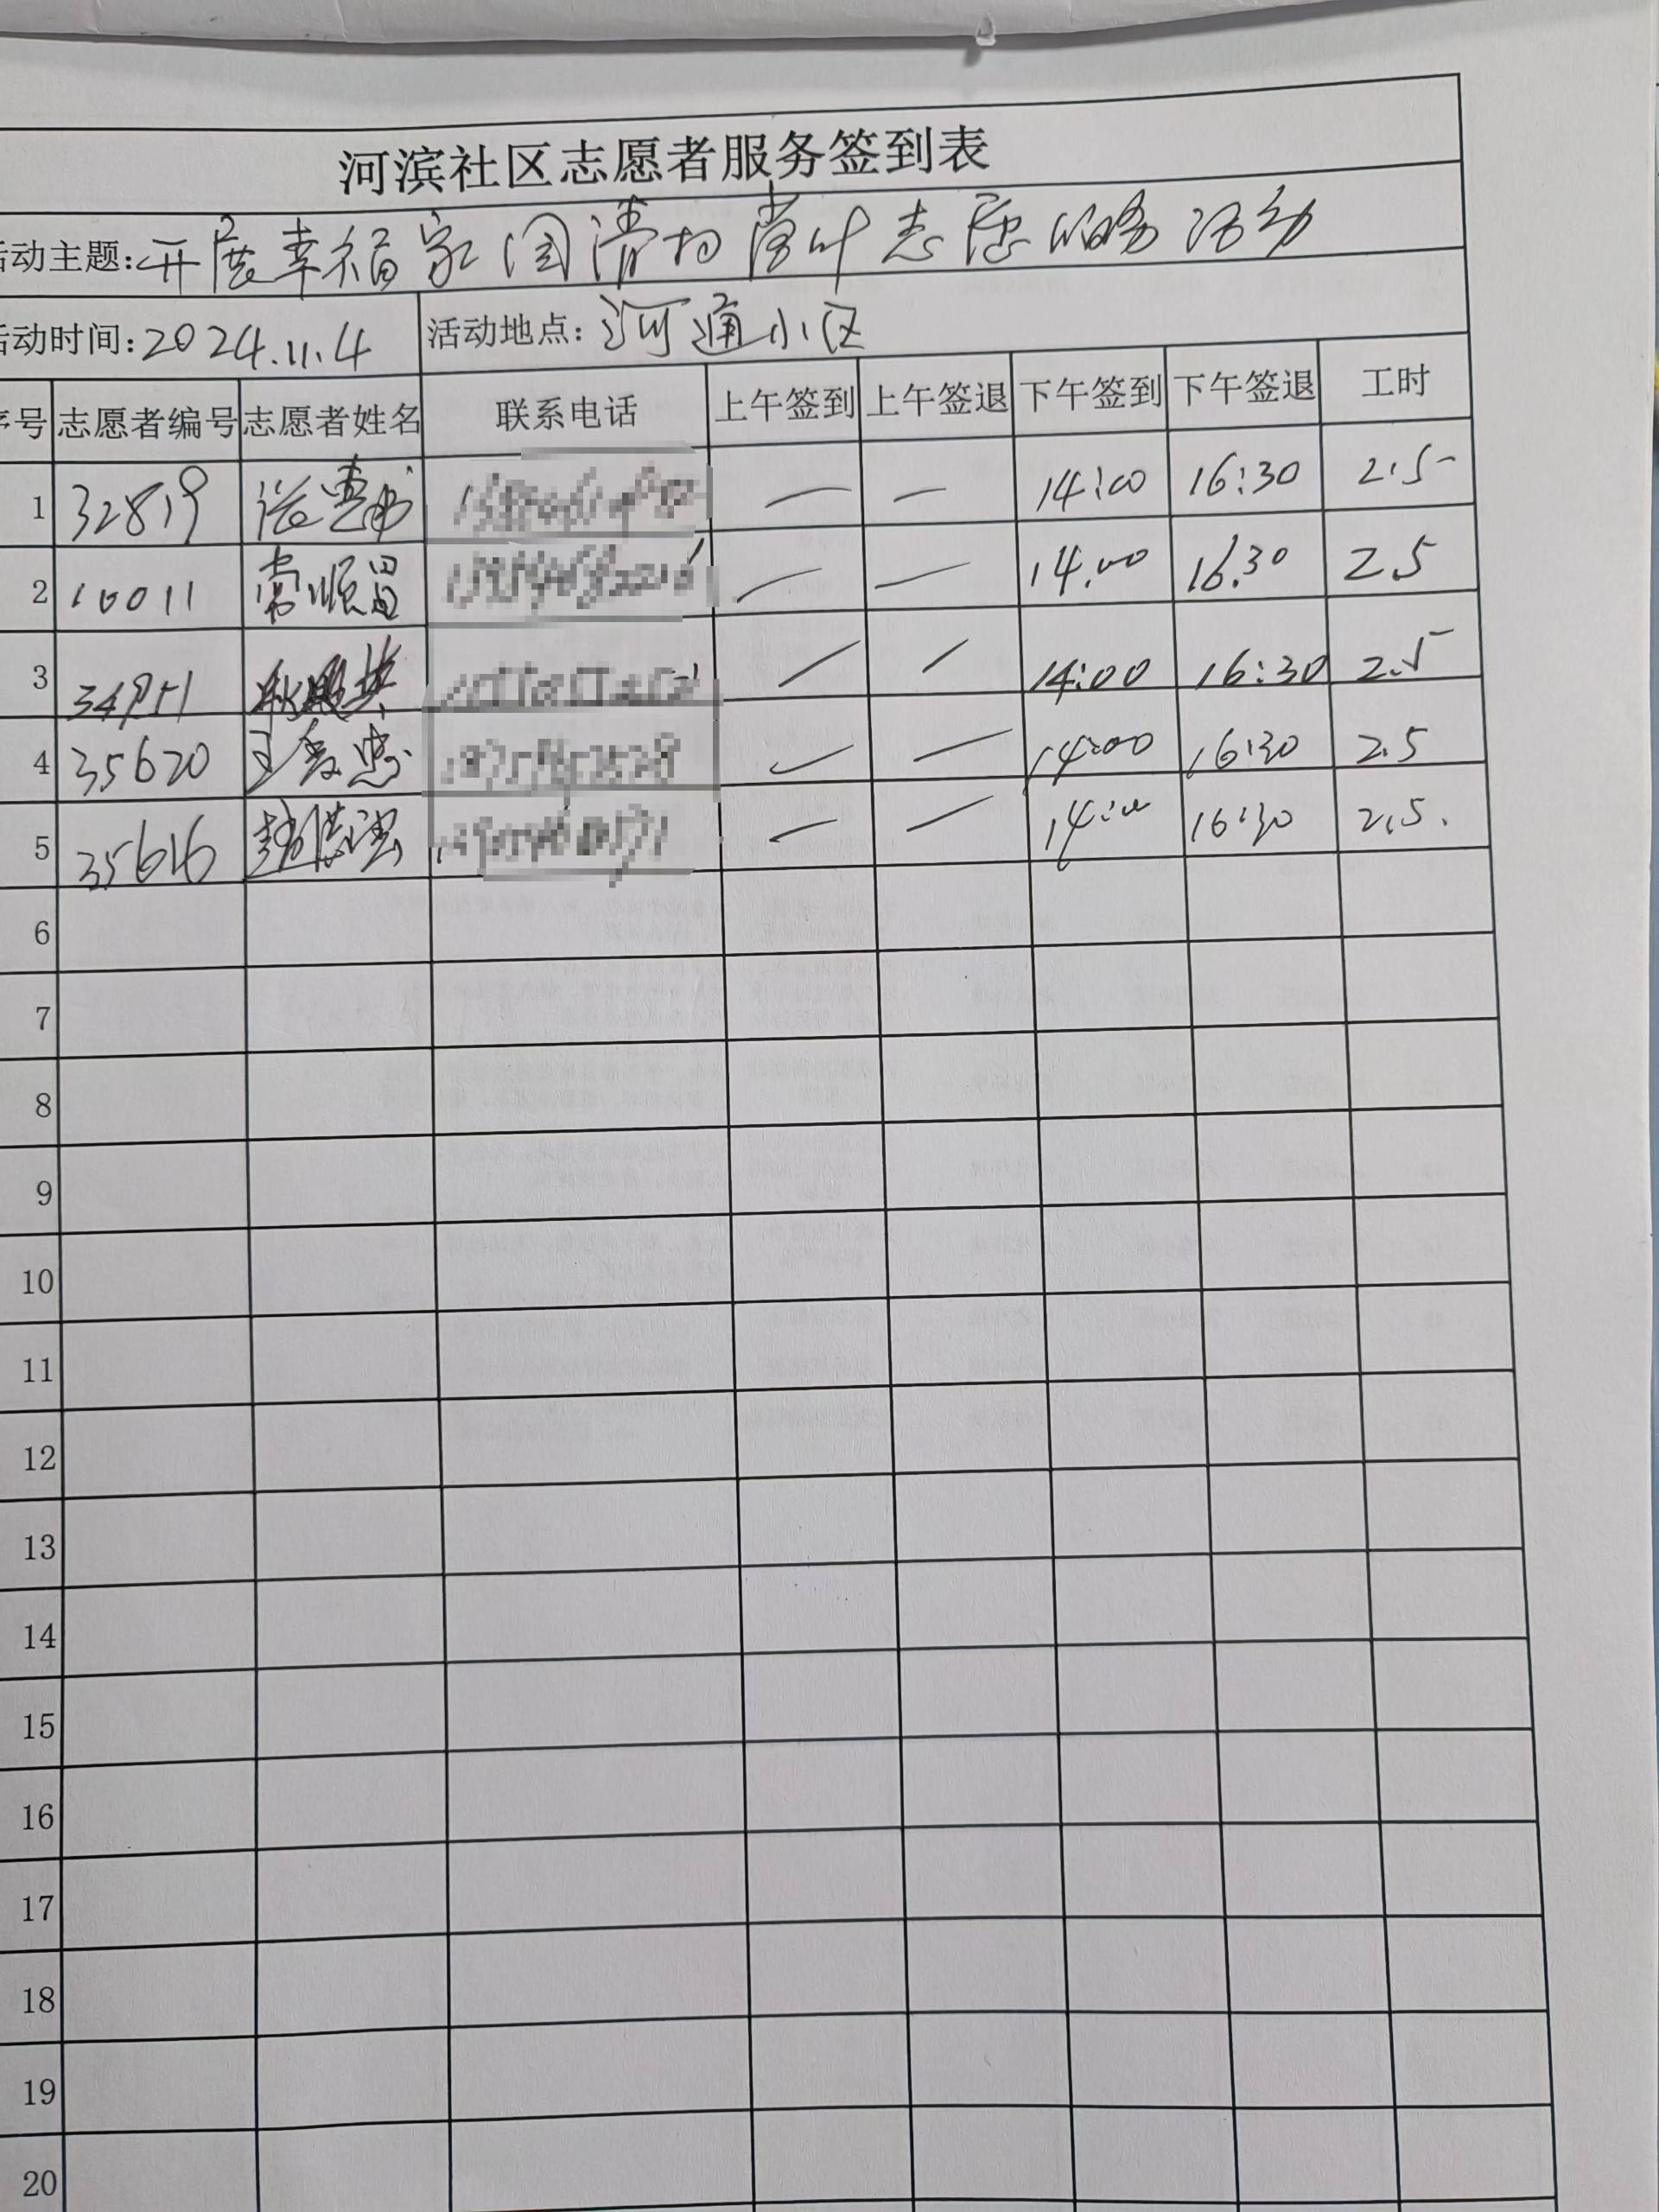 河滨社区志愿者服务签到表
活动主题: 开展幸福家园清扫落叶志愿服务活动
活动时间: 2024.11.4 活动地点: 河通小区
序号 志愿者编号 志愿者姓名 联系电话 上午签到 上午签退 下午签到 下午签退 工时
1 32819 — — 14:00 16:30 2.5
2 10011 常顺昌 — — 14.00 16.30 2.5
3 — — 14:00 16:30 2.5
4 35620 — — 14:00 16:30 2.5
5 35616 — — 14:00 16:30 2.5.
6
7
8
9
10
11
12
13
14
15
16
17
18
19
20